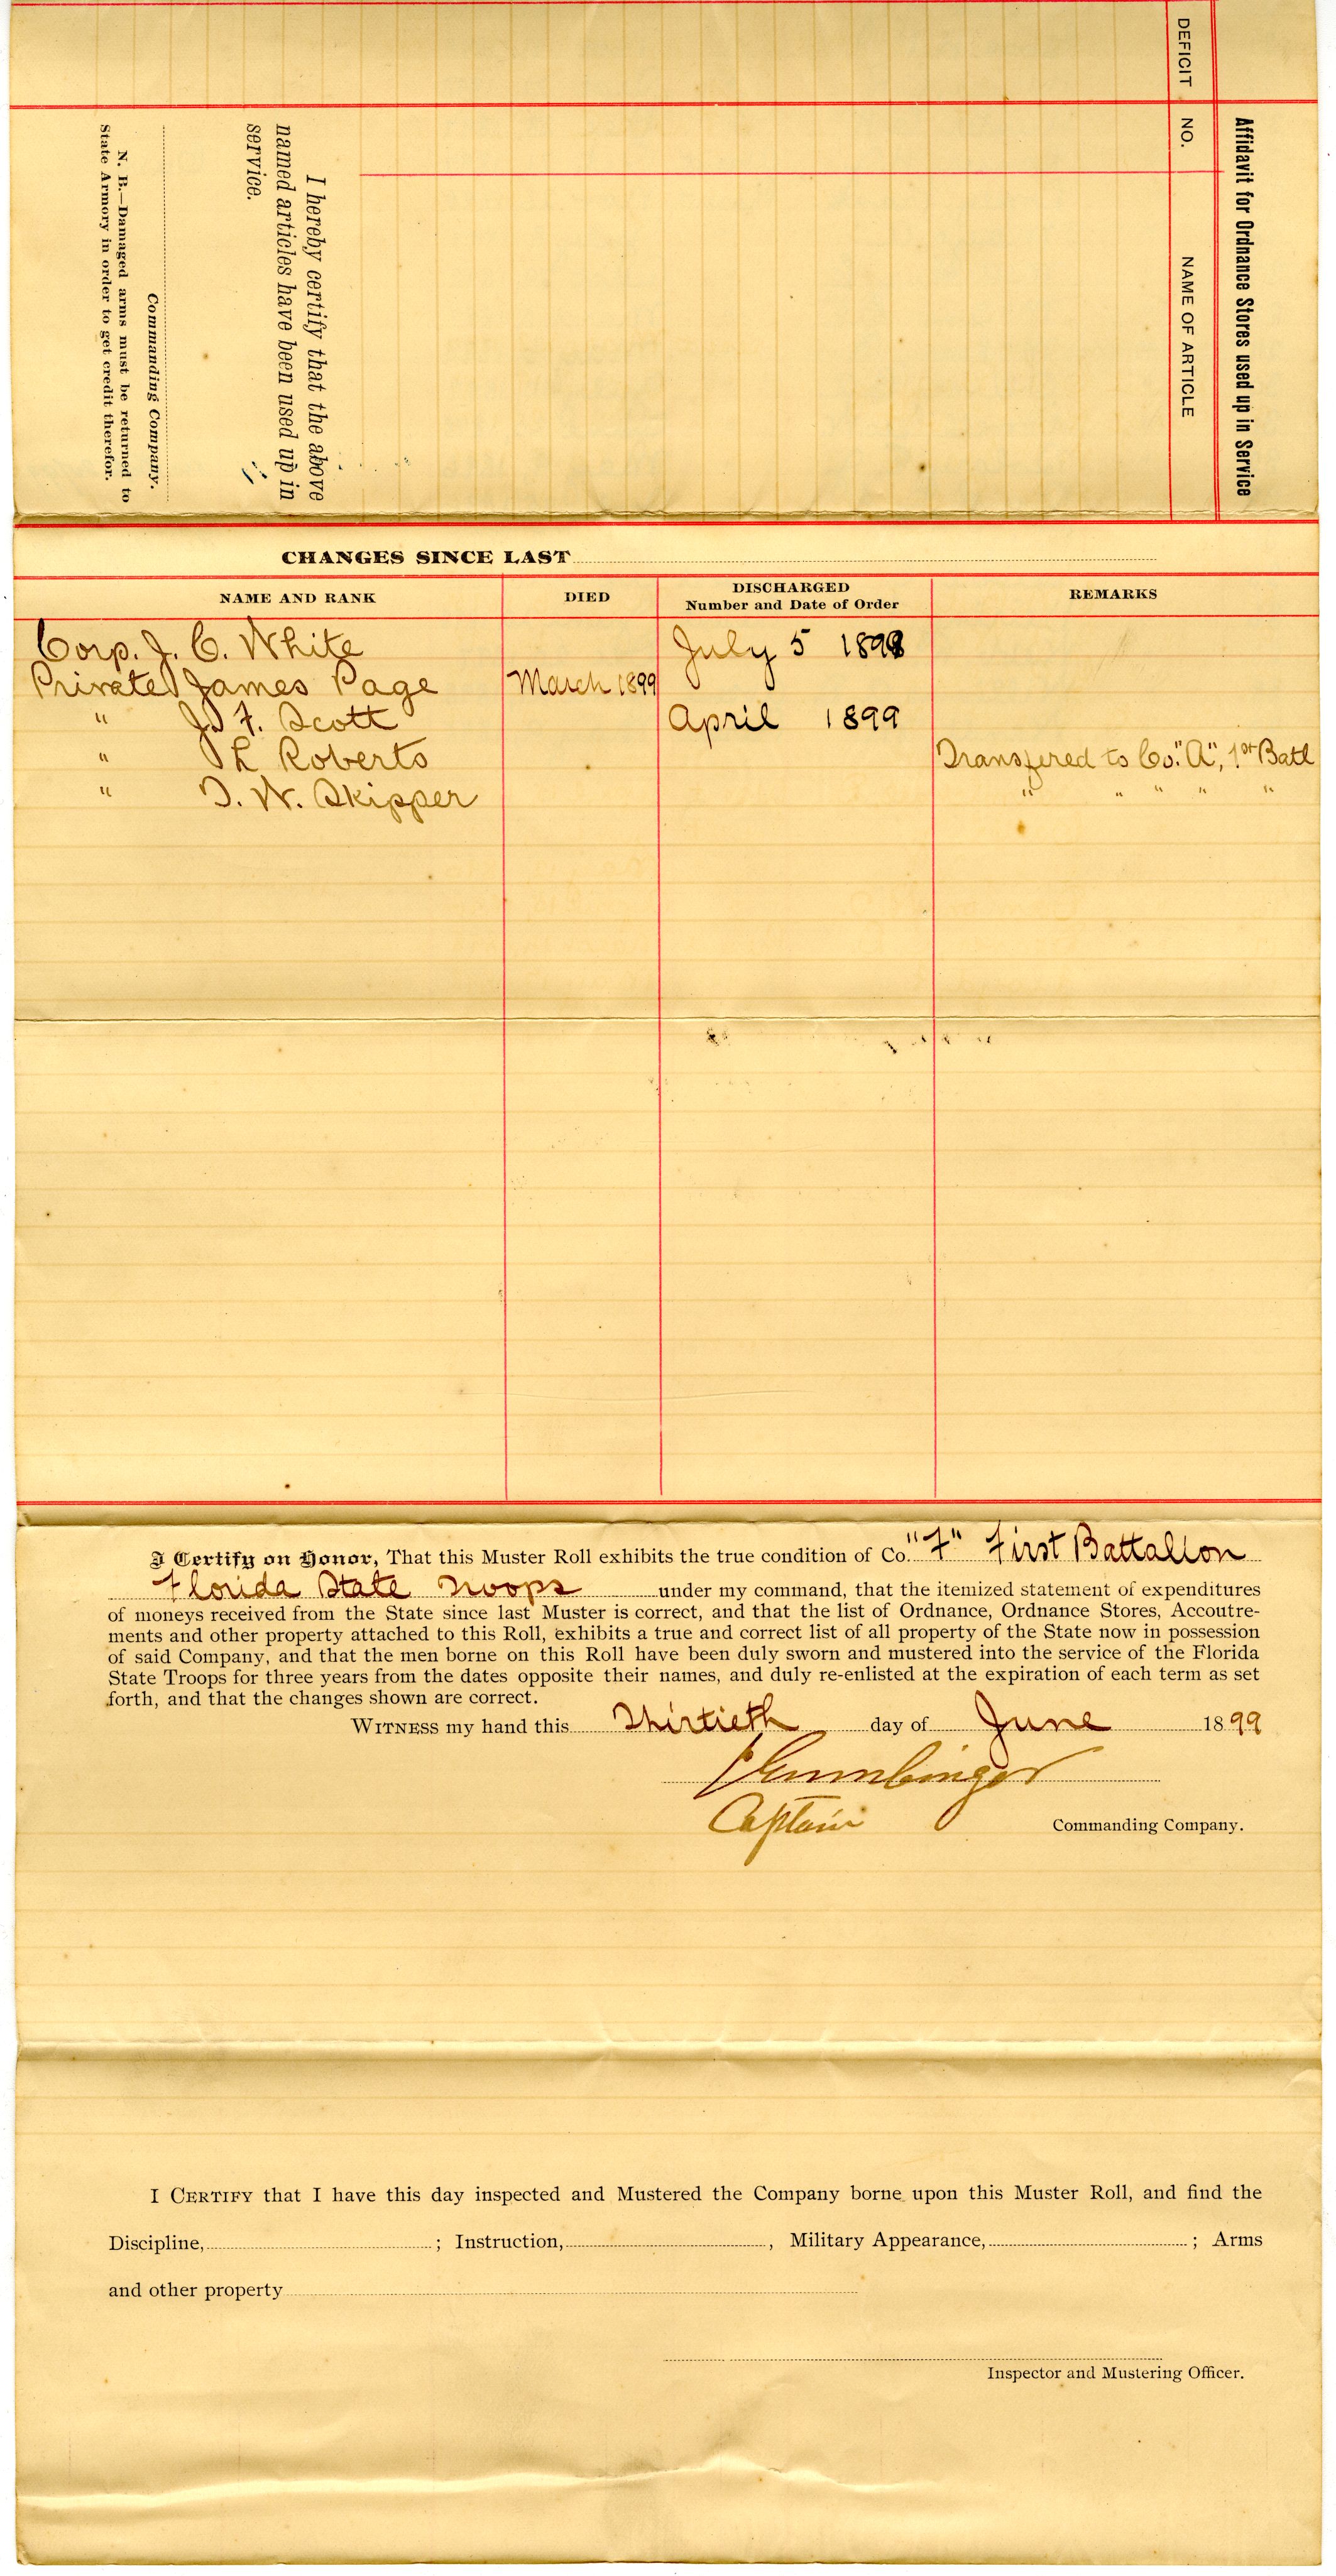 Affidavit for Ordnance Stores used up in Service
DEFICIT NO. NAME OF ARTICLE
I hereby certify that the above
named articles have been used up in
service.
Commanding Company.
N. B.—Damaged arms must be returned to
State Armory in order to get credit therefor.
CHANGES SINCE LAST
NAME AND RANK DIED DISCHARGED Number and Date of Order REMARKS
Corp. J. C. White July 5 1898
Private James Page March 1899
" J. F. Scott April 1899
" L Roberts Transfered to Co. "A", 1st Batl
" T. W. Skipper " " " " "
I Certify on Honor, That this Muster Roll exhibits the true condition of Co. "F" First Battalion
Florida State Troops under my command, that the itemized statement of expenditures
of moneys received from the State since last Muster is correct, and that the list of Ordnance, Ordnance Stores, Accoutre-
ments and other property attached to this Roll, exhibits a true and correct list of all property of the State now in possession
of said Company, and that the men borne on this Roll have been duly sworn and mustered into the service of the Florida
State Troops for three years from the dates opposite their names, and duly re-enlisted at the expiration of each term as set
forth, and that the changes shown are correct.
WITNESS my hand this Thirtieth day of June 1899
Captain Commanding Company.
I CERTIFY that I have this day inspected and Mustered the Company borne upon this Muster Roll, and find the
Discipline, ; Instruction, , Military Appearance, ; Arms
and other property
Inspector and Mustering Officer.